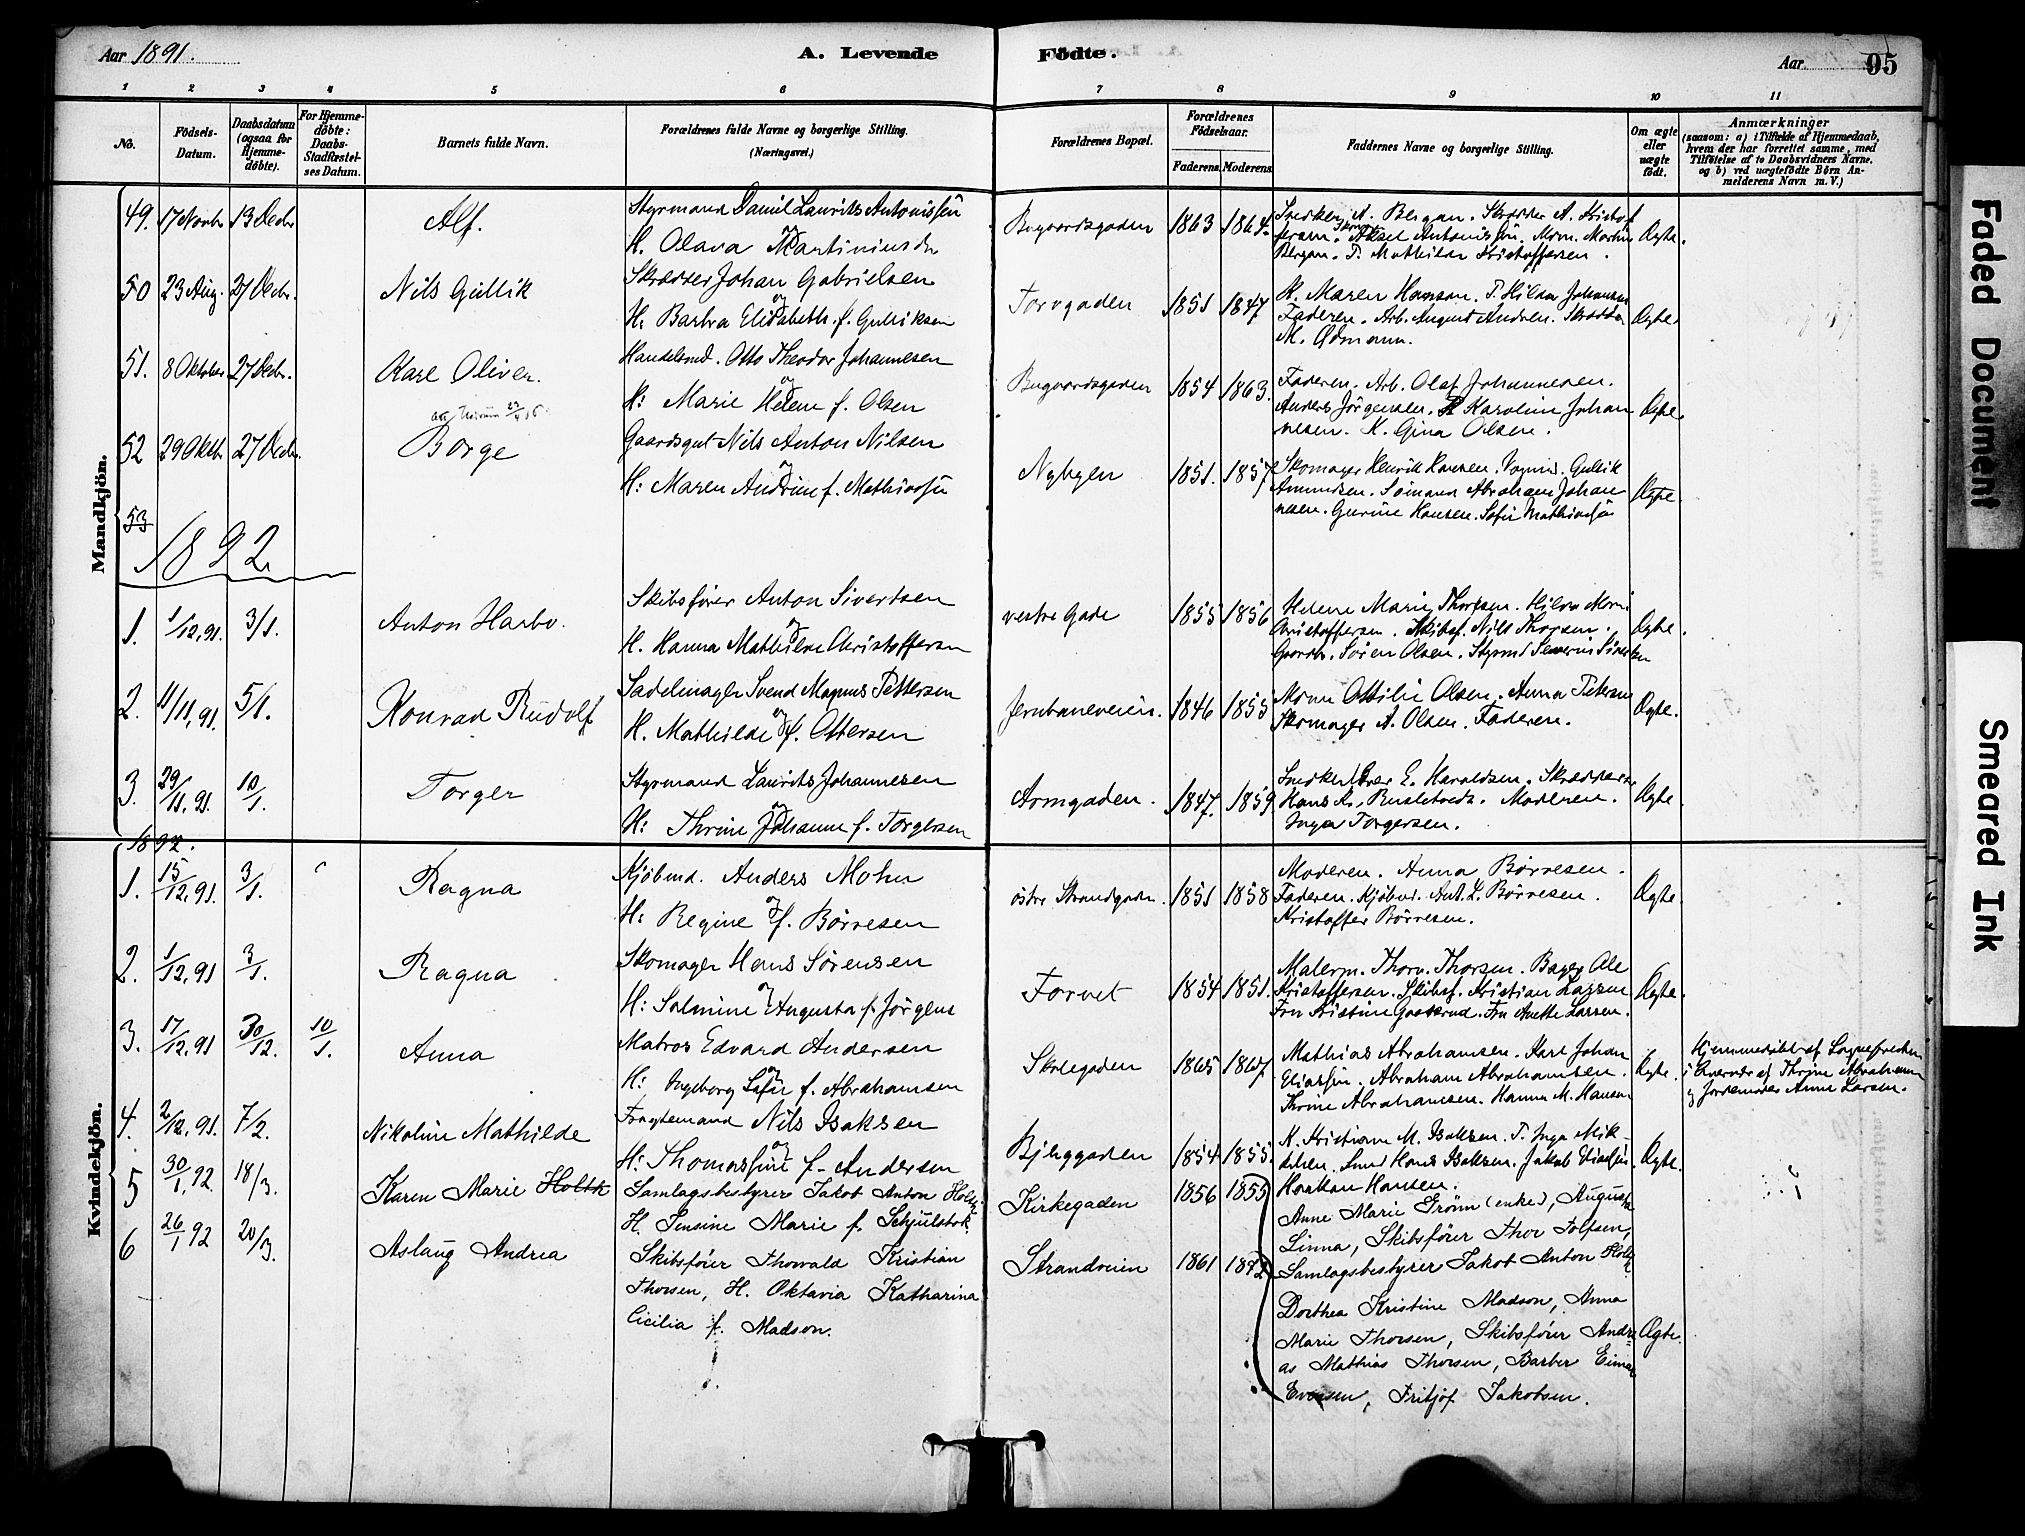 Aar 1891.
A. Levende
Födte.
Aar
95
1 2 3 4 5 6 7 8 9 10 11
No.
Födsels-Datum.
Daabsdatum (ogsaa for Hjemme-döbte).
For Hjemme-döbte: Daabs-Stadfæstel-ses Datum.
Barnets fulde Navn.
Forældrenes fulde Navne og borgerlige Stilling. (Næringsvei.)
Forældrenes Bopæl.
Forældrenes Födselsaar.
Faderens. Moderens.
Faddernes Navne og borgerlige Stilling.
Om ægte eller uægte födt.
Anmærkninger
(saasom: a) i Tilfælde af Hjemmedaab, hvem der har forrettet samme, med Tilföielse af to Daabsvidners Navne. og b) ved uægtefödte Börn An-melderens Navn m. V.)
Mandkjön.
49. 17 Novbr 13 Decbr
Alf.
Styrmand Daniel Laurits Antonissen
og
H. Olava Martiniusdr
Bugaardsgaden
1863 1864.
Snedker A. Bergan. Skrædder A. Kristof
fersen. Aksel Antonissen. Mdm. Martin
Bergan. P. Mathilde Kristoffersen.
Ægte.
50 23 Aug. 27 Decbr.
Nils Gullik
Skrædder Johan Gabrielsen
og
H. Barbra Elisabeth f. Gulliksen
Torvgaden
1851 1847
K. Maren Hansen. P. Hilda Johansen
Faderen. Arb. August Andren. Skrædder
M. Ødmann.
Ægte.
51. 8 Oktober 27 Decbr.
Karl Oliver.
Handelsmd. Otto Theodor Johannesen
og
H: Marie Helene f. Olsen
Bugaardsgaden
1854 1863.
Faderen. Arb. Olaf Johannesen.
Anders Jörgensen. P. Karoline Johan
nesen. K. Gina Olsen.
Ægte.
52 29 Oktb. 27 Decbr.
Borge
Gaardsgut Nils Anton Nilsen
og
H: Maren Andrine f. Mathiassen
Nybyen
1851. 1857
Skomager Henrik Hansen. Vognmd. Gullik
Amundsen. Sömand Abraham Johan
nesen. Gurine Hansen. Sofie Mathiassen
Ægte.
53
1892
1. 1/12, 91. 3/1.
Anton Harbo.
Skibsförer Anton Sivertsen
og
H. Hanna Mathilde Christoffersen
vestre Gade
1855 1856
Helene Marie Thorsen. Hilda Marie
Christoffersen. Skibsf. Nils Thorsen.
Gaardbr. Sören Olsen. Styrmd Severin Sivertsen
Ægte.
2. 11/11, 91. 5/1.
Konrad Rudolf
Sadelmager Svend Magnus Pettersen
og
H. Mathilde f. Ottersen
Jernbaneveien.
1846 1855
Mdm Ottilie Olsen. Anna Petersen
Skomager A. Olsen. Faderen.
Ægte.
3. 29/11, 91. 10/1.
Torger
Styrmand Laurits Johannesen
og
H: Thrine Johanne f. Torgersen
Armgaden.
1847. 1859
E. Haraldsen. Skrædder
Hans K. Moderen.
Inga Torgersen.
Ægte.
1892.
Kvindekjön.
1. 15/12, 91. 3/1.
Ragna
Kjöbmd. Anders Mohn
og
H: Regine f. Börresen
östre Strandgaden.
1851 1858
Moderen. Anna Börresen.
Faderen. Kjöbmd. Ant. L. Börresen.
Kristoffer Börresen.
Ægte.
2. 1/12, 91 3/1.
Ragna
Skomager Hans Sörensen
og
H: Salmine Augusta f. Jörgens
Torvet
1854 1851.
Malerm. Thorv. Thorsen. Bager Ole
Kristoffersen. Skibsf. Kristian Larsen
Fru Kristine Gasserud. Fru Anette Larsen.
Ægte.
3. 17/12, 91 30/12. 10/1.
Anna
Matros Edvard Andersen
og
H: Ingeborg Sofie f. Abrahamsen
Skolegaden
1865 1867
Mathias Abrahamsen. Karl Johan
Eliassen. Abraham Abrahamsen.
Thrine Abrahamsen. Hanna M. Hansen
Ægte.
Hjemmedöbt af Sognepresten
i Overvær af Thrine Abrahamsen
og Jordemoder Anne Larsen.
4. 2/12, 91. 7/2.
Nikoline Mathilde
Fragtemand Nils Isaksen
og
H: Thomassine f. Andersen
Bjerggaden
1854 1855.
K. Kristiane M. Isaksen. P. Inga Mik-
kelsen. Smd Hans Isaksen. Jakob Eliassen.
Haakon Hansen.
Ægte.
5 30/1, 92. 18/3.
Karen Marie Holth
Samlagsbestyrer Jakob Anton Holth
H. Jensine Marie f. Schjulstok
Kirkegaden
1856 1855
Anne Marie Grönn (enke), Augusta
Linna, Skibsförer Thor Tolfsen,
Samlagsbestyrer Jakob Anton Holth
6 26/1 92 20/3.
Aslaug Andrea
Skibsförer Thorvald Kristian
Thorsen, H. Oktavia Katharina
Cicilia f. Madson.
Strandveien
1861
Dorthea Kristine Madson, Anna
Marie Thorsen, Skibsförer Andre-
as Mathias Thorsen, Barber Einar
Evensen, Fritjof Jakobsen.
Ægte.
Faded Document
Smeared Ink